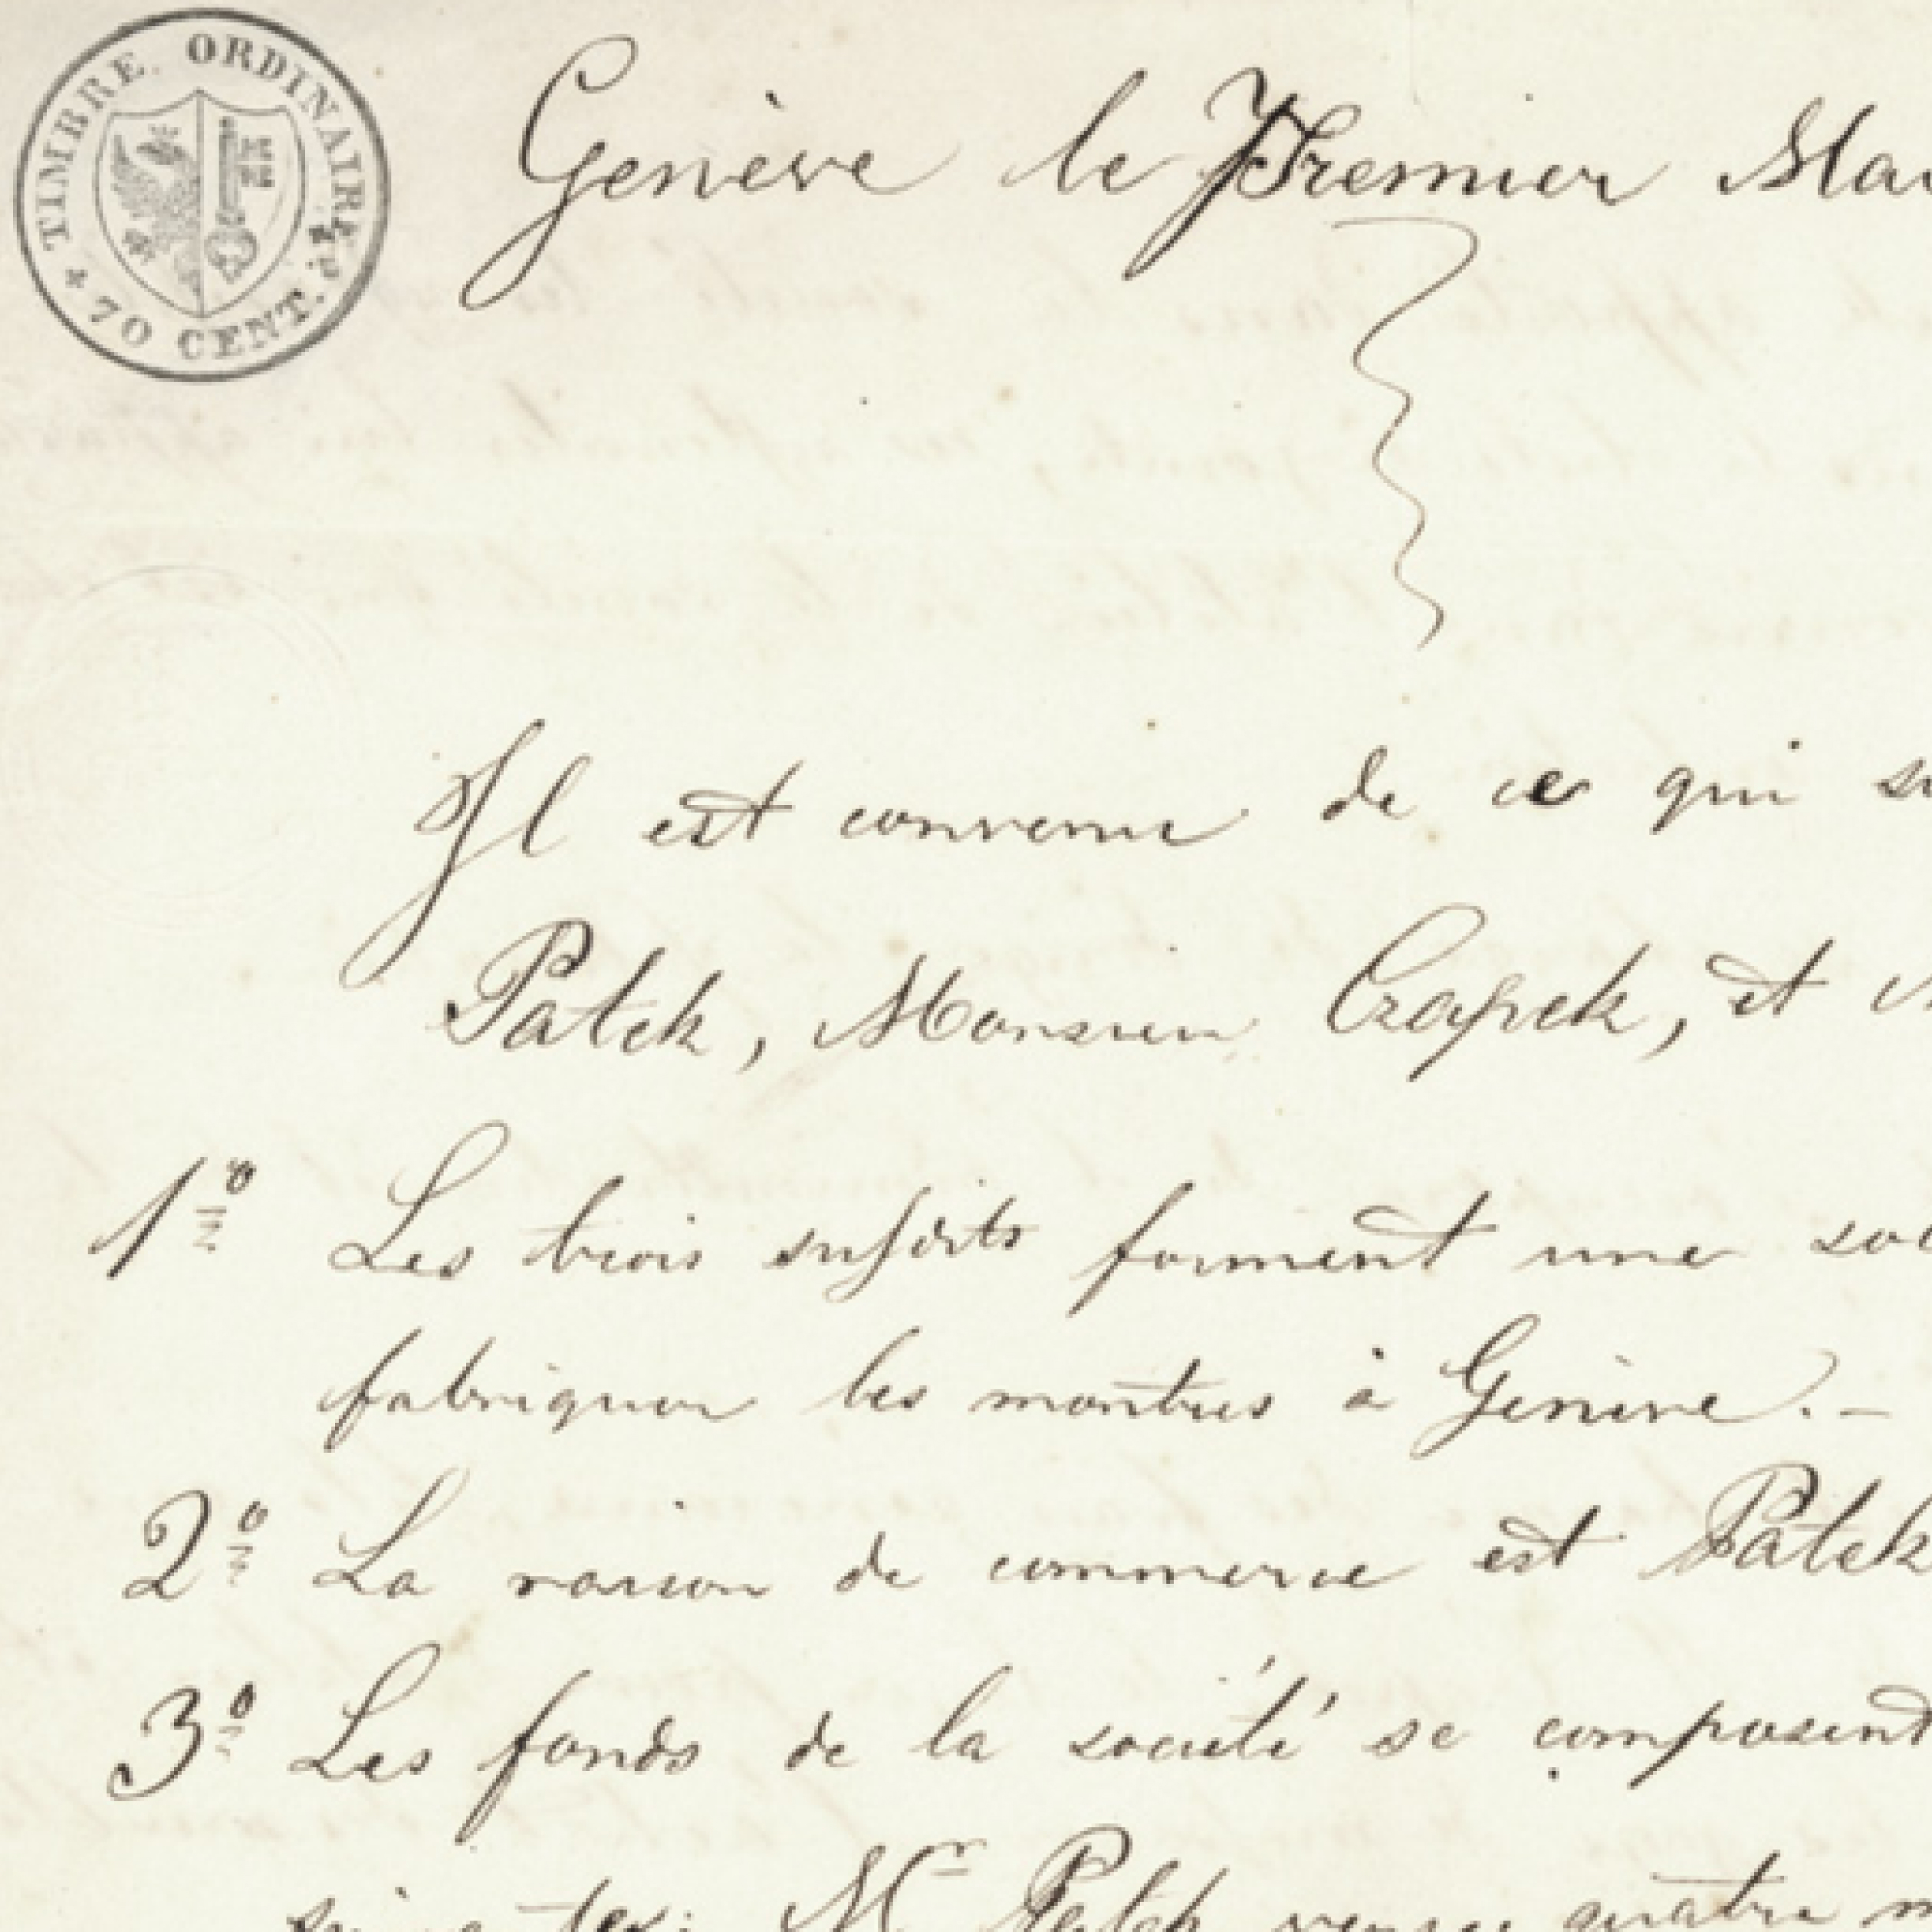 TIMBRE. ORDINAIRE.
* 70 CENT.
Genève le Premier Ma
Il est convenu de ce qui su
Patek, Monsieur Czapek, et
1º Les trois susdits forment une soc
fabriquer les montres à Genève. –
2º La raison de commerce est Patek
3º Les fonds de la société se composent
Mr Patek verse quatre m